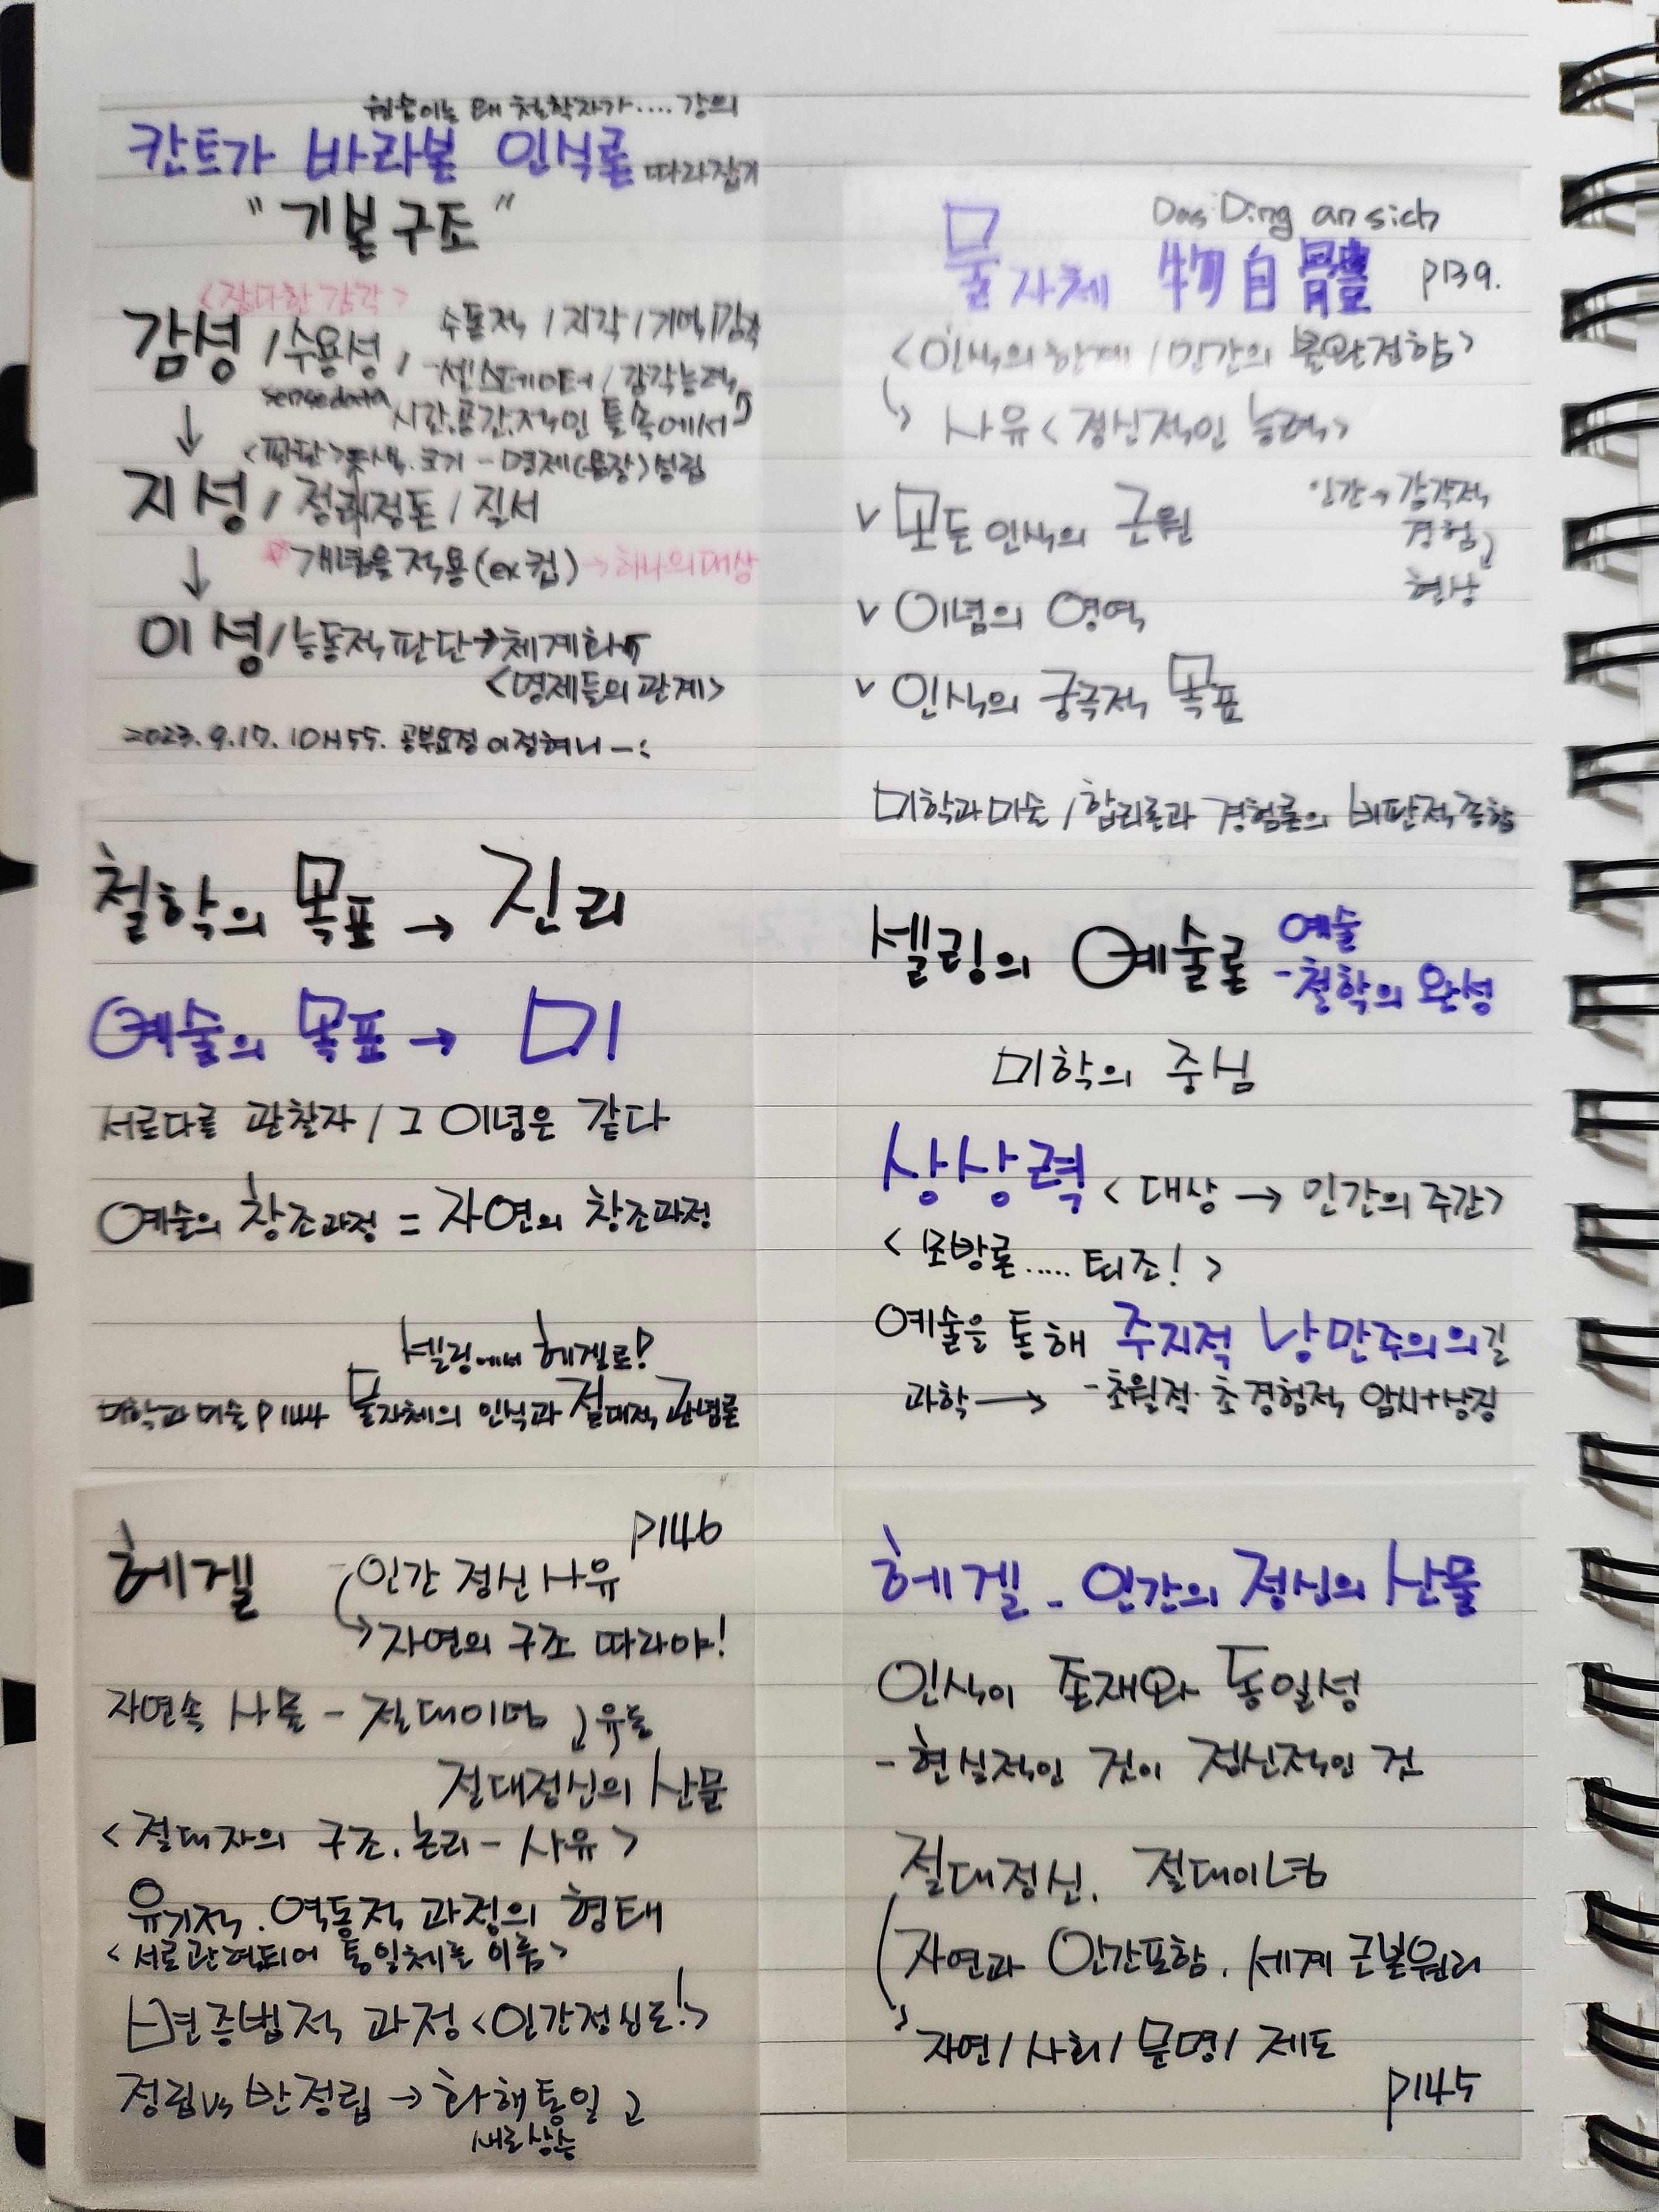 원숭이는 왜 철학자가.... 강의
칸트가 바라본 인식론 따라잡기
"기본구조"
<잡다한 감각>
감성 /수용성/ 수동적 /지각/기억/감각
sensedata -센스데이터/감각능력
시간.공간.적인 틀 속에서
↓
<판단> 색.크기 - 명제(문장)성립
지성/정리정돈/질서
↓ 개념을 적용(ex컵)→하나의 대상
이성/능동적 판단→체계화
<명제들의 관계>
2023.9.17.10H55. 공부요정 이정혀니-:
Das Ding an sich
물자체 物自體 p139.
<인식의 한계/인간의 불완전함>
사유<정신적인 능력>
v 모든 인식의 근원
인간→감각적
경험
현상
v 이념의 영역
v 인식의 궁극적 목표
미학과 미술/합리론과 경험론의 비판적 종합
철학의 목표 → 진리
예술의 목표 → 미
서로다른 관찰자/그 이념은 같다
예술의 창조과정 = 자연의 창조과정
셸링에서 헤겔로!
미학과 미술 p144 물자체의 인식과 절대적 관념론
셸링의 예술론 예술
-철학의 완성
미학의 중심
상상력 <대상 → 인간의 주관>
<모방론..... 퇴조!>
예술을 통해 주지적 낭만주의의 길
과학 → -초월적.초경험적 암시+상징
헤겔 p146
-인간 정신 사유
→자연의 구조 따라야!
자연속 사물 - 절대이념
절대정신의 산물
<절대자의 구조.논리 - 사유>
유기적.역동적 과정의 형태
<서로관련되어 통일체를 이룸>
변증법적 과정<인간정신도!>
정립vs반정립 → 화해통일
새로상승
헤겔 - 인간의 정신의 산물
인식이 존재와 동일성
-현실적인 것이 정신적인 것
절대정신. 절대이념
자연과 인간포함. 세계 근본원리
자연/사회/문명/제도
p145